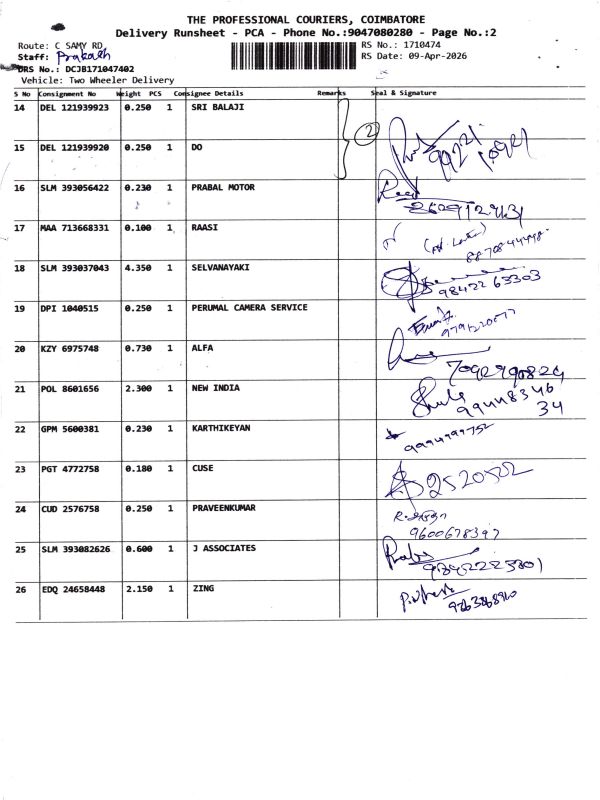 THE PROFESSIONAL COURIERS, COIMBATORE
Delivery Runsheet - PCA - Phone No.:9047080280 - Page No.:2
Route: C SAMY RD
RS No.: 1710474
Staff: Prakash
RS Date: 09-Apr-2026
DRS No.: DCJB171047402
Vehicle: Two Wheeler Delivery
S No Consignment No Weight PCS Consignee Details Remarks Seal & Signature
14 DEL 121939923 0.250 1 SRI BALAJI
2
15 DEL 121939920 0.250 1 DO
16 SLM 393056422 0.230 1 PRABAL MOTOR
17 MAA 713668331 0.100 1 RAASI
18 SLM 393037043 4.350 1 SELVANAYAKI 98422 63303
19 DPI 1040515 0.250 1 PERUMAL CAMERA SERVICE
20 KZY 6975748 0.730 1 ALFA
7092790824
21 POL 8601656 2.300 1 NEW INDIA
99448346
34
22 GPM 5600381 0.230 1 KARTHIKEYAN 9994999752
23 PGT 4772758 0.180 1 CUSE 2520502
24 CUD 2576758 0.250 1 PRAVEENKUMAR
9600678397
25 SLM 393082626 0.600 1 J ASSOCIATES
26 EDQ 24658448 2.150 1 ZING